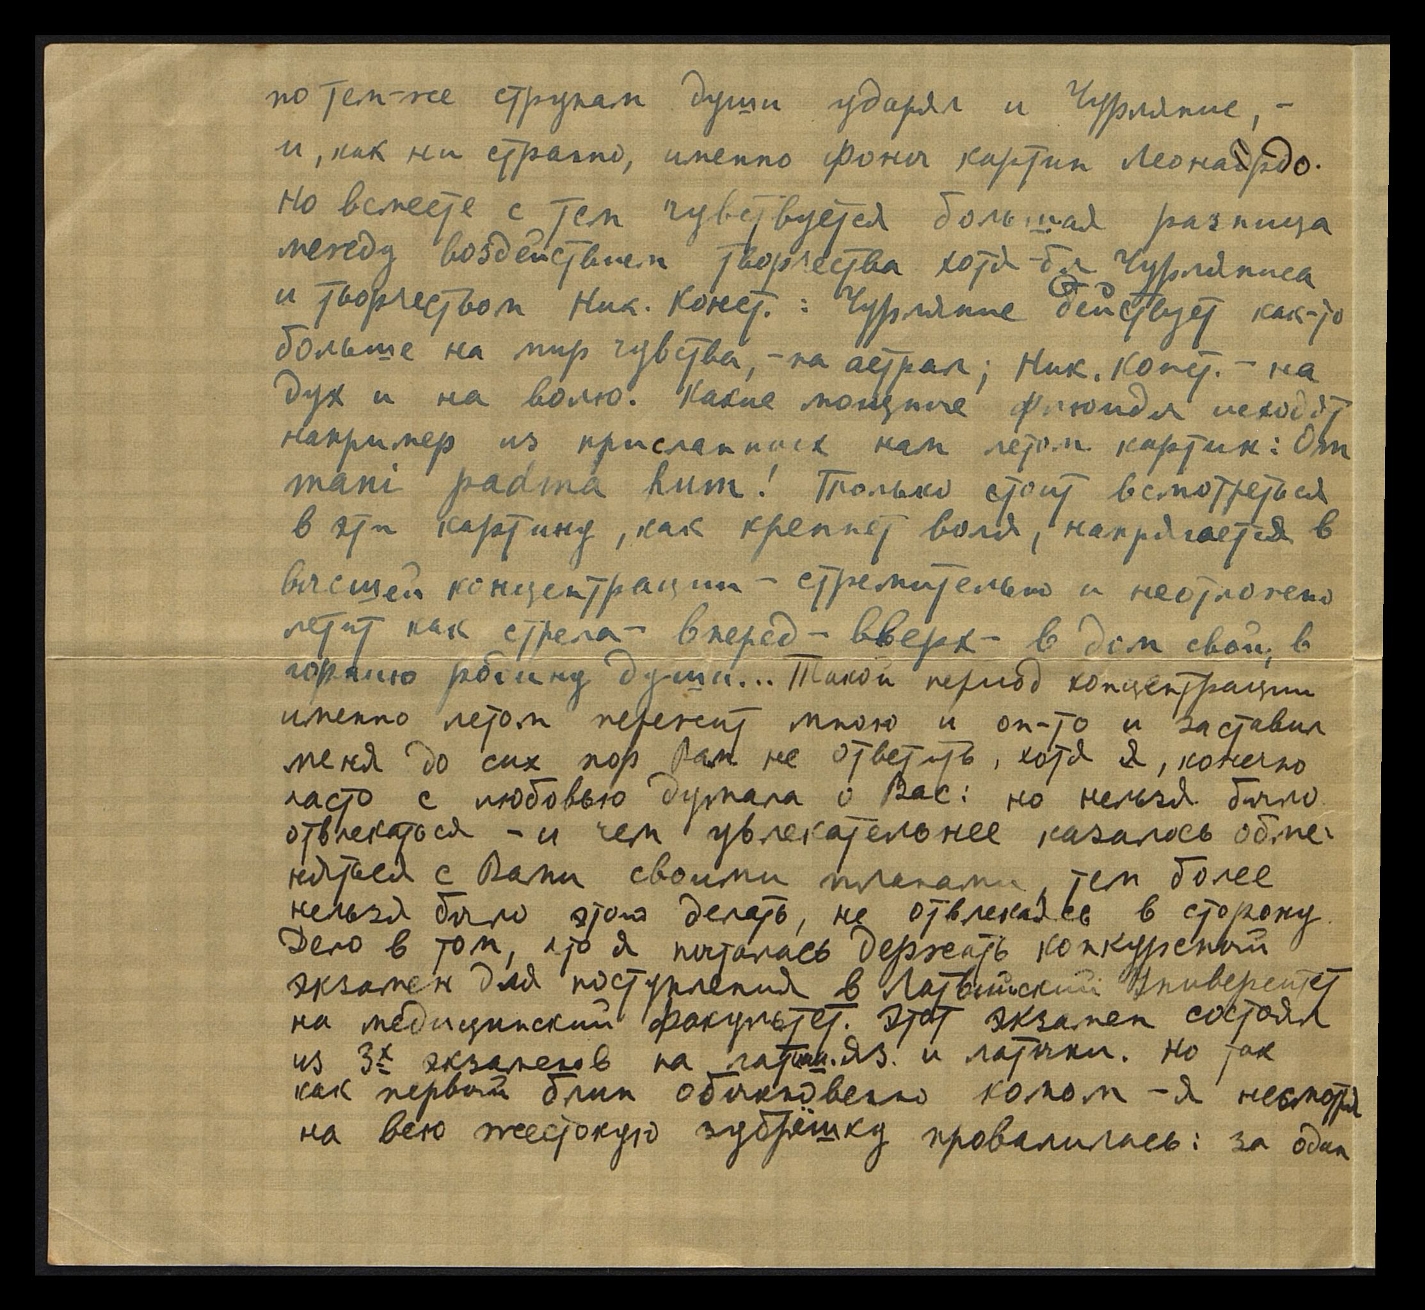 по тем-же струнам души ударял и Чурлянис, -
и, как ни странно, именно фоны картин Леонардо.
Но вместе с тем чувствуется большая разница
между воздействием творчества хотя-бы Чурляниса
и творчеством Ник. Конст. : Чурлянис действует как-то
больше на мир чувства, - на астрал; Ник. Конст. - на
дух и на волю. Какие мощные флюиды исходят
например из присланных нам летом картин: Om
mani padma hum! Только стоит всмотреться
в эту картину, как крепнет воля, напрягается в
высшей концентрации - стремительно и неотложно
летит как стрела - вперед - вверх - в дом свой, в
горнюю родину души... Такой период концентрации
именно летом пережит мною и он-то и заставил
меня до сих пор Вам не ответить, хотя я, конечно
часто с любовью думала о Вас: но нельзя было
отвлекаться - и чем увлекательнее казалось обме-
няться с Вами своими планами, тем более
нельзя было этого делать, не отвлекаясь в сторону.
Дело в том, что я пыталась держать конкурсный
экзамен для поступления в Латвийский Университет
на медицинский факультет. Этот экзамен состоял
из 3х экзаменов на латыш. яз. и латыни. Но так
как первый блин обыкновенно комом - я несмотря
на всю жестокую зубрёшку провалилась: за один